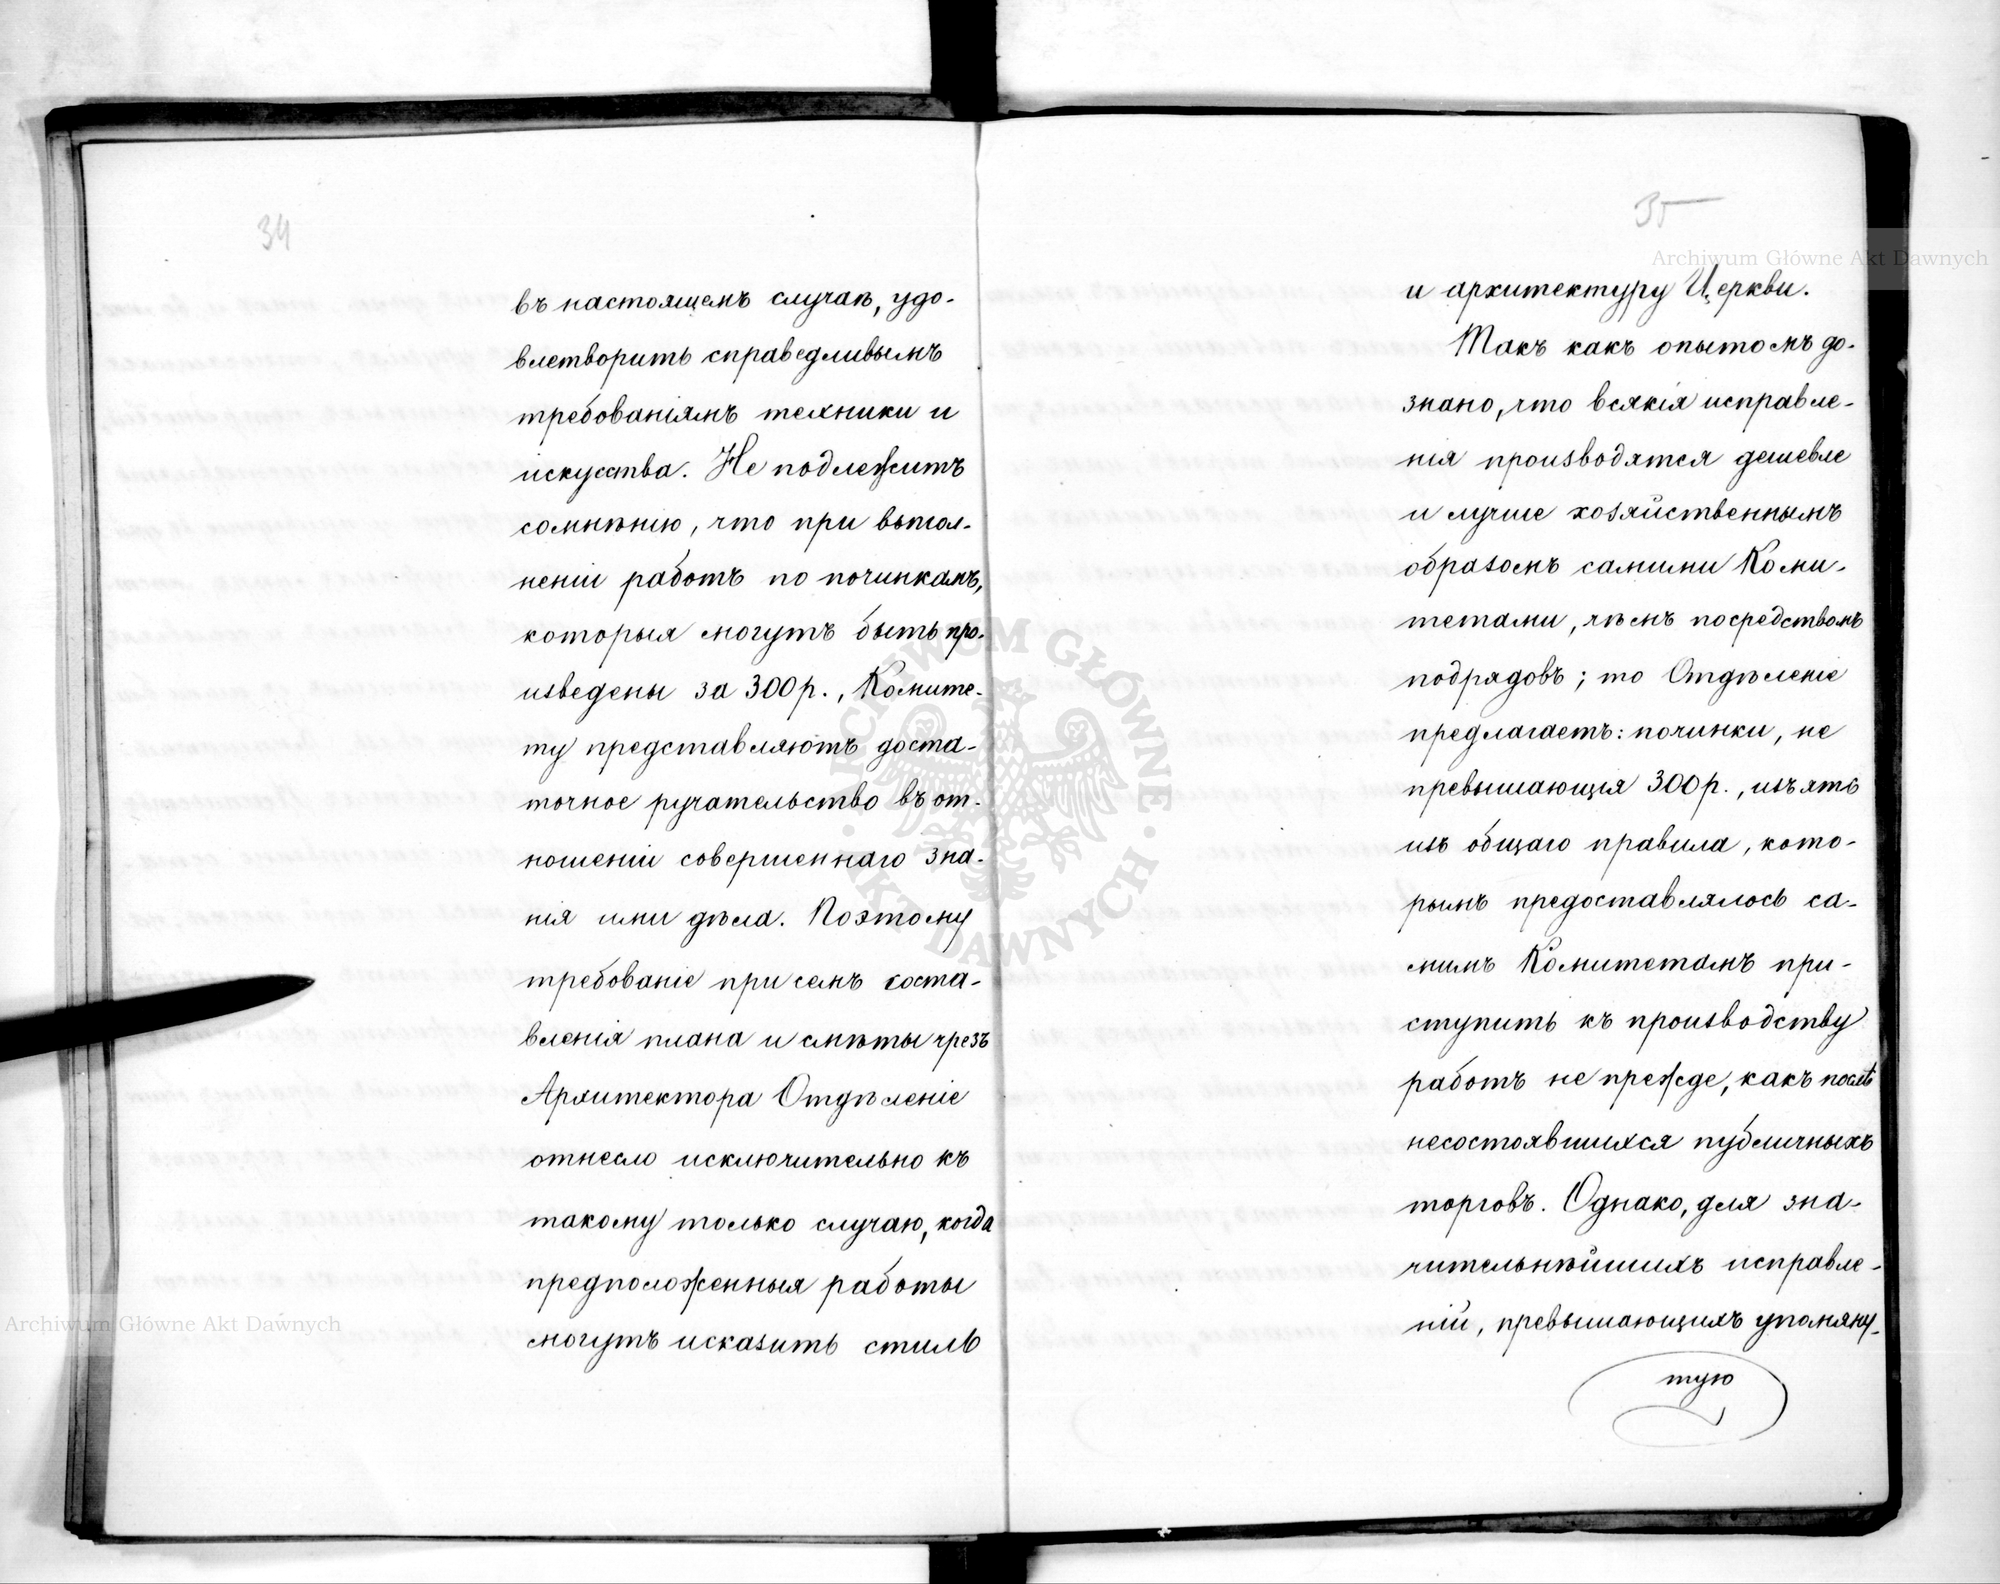 34
въ настоящемъ случаѣ, удо-
влетворить справедливымъ
требованіямъ техники и
искусства. Не подлежитъ
сомнѣнію, что при выпол-
неніи работъ по починкамъ,
которыя могутъ быть про-
изведены за 300 р., Комите-
ту представляютъ доста-
точное ручательство въ от-
ношеніи совершеннаго зна-
нія ими дѣла. Поэтому
требованіе при семъ соста-
вленія плана и смѣты чрезъ
Архитектора Отдѣленіе
отнесло исключительно къ
такому только случаю, когда
предположенныя работы
могутъ исказить стиль
35
и архитектуру Церкви.
Такъ какъ опытомъ до-
знано, что всякія исправле-
нія производятся дешевле
и лучше хозяйственнымъ
образомъ самими Коми-
тетами, чѣмъ посредствомъ
подрядовъ; то Отдѣленіе
предлагаетъ: починки, не
превышающія 300 р., изъять
изъ общаго правила, кото-
рымъ предоставлялось са-
мимъ Комитетамъ при-
ступить къ производству
работъ не прежде, какъ послѣ
несостоявшихся публичныхъ
торговъ. Однако, для зна-
чительнѣйшихъ исправле-
ній, превышающихъ упомяну-
тую
Archiwum Główne Akt Dawnych
Archiwum Główne Akt Dawnych
ARCHIWUM GŁÓWNE AKT DAWNYCH